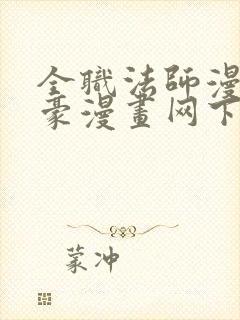 全職法師漫
豪漫畫网下
蒙冲